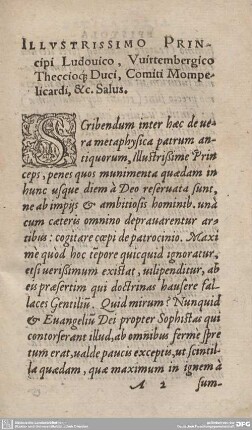 ILLVSTRISSIMO PRIN-
cipi Ludouico, Vuirtembergico
Theccioq; Duci, Comiti Mompe-
licardi, &c. Salus.
SCribendum inter hæc de ve-
ra metaphysica patrum an-
tiquorum, Illustrissime Prin
ceps, penes quos munimenta quædam in
hunc usque diem à Deo reseruata sunt,
ne ab impijs & ambitiosis hominib. unà
cum cæteris omnino deprauarentur ar-
tibus: cogitare cœpi de patrocinio. Maxi
me quod hoc tēpore quicquid ignoratur,
etsi verissimum existat, uilipenditur, ab
eis præsertim qui doctrinas hausere fal-
laces Gentiliū. Quid mirum? Nunquid
& Euangeliū Dei propter Sophistas qui
contorserant illud, ab omnibus fermè spre
tum erat, ualde paucis exceptis, ut scintil
la quædam, quæ maximum in ignem à
A 2 sum-